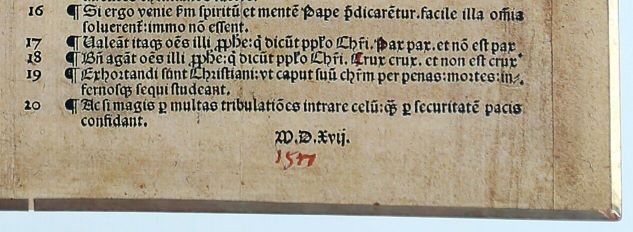 16 ¶ Si ergo venie km spiritũ et mentẽ Pape p̃dicarẽtur. facile illa om̃ia
soluerent: immo nõ essent.
17 ¶ Ualeãt itaq; oẽs illi ꝓphe: q̃ dicũt ppło Chr̃i. Pax pax. et nõ est pax
18 ¶ Bñ agãt oẽs illi ꝓphe: q̃ dicũt ppło Chr̃i. Crux crux. et non est crux
19 ¶ Exhortandi sũnt Christiani: vt caput suũ chr̃m per penas: mortes: in-
fernosq; sequi studeant.
20 ¶ Ac si magis ꝑ multas tribulatiões intrare celũ: q̃ ꝑ securitatẽ pacis
confidant.
M.D.Xvij.
1517